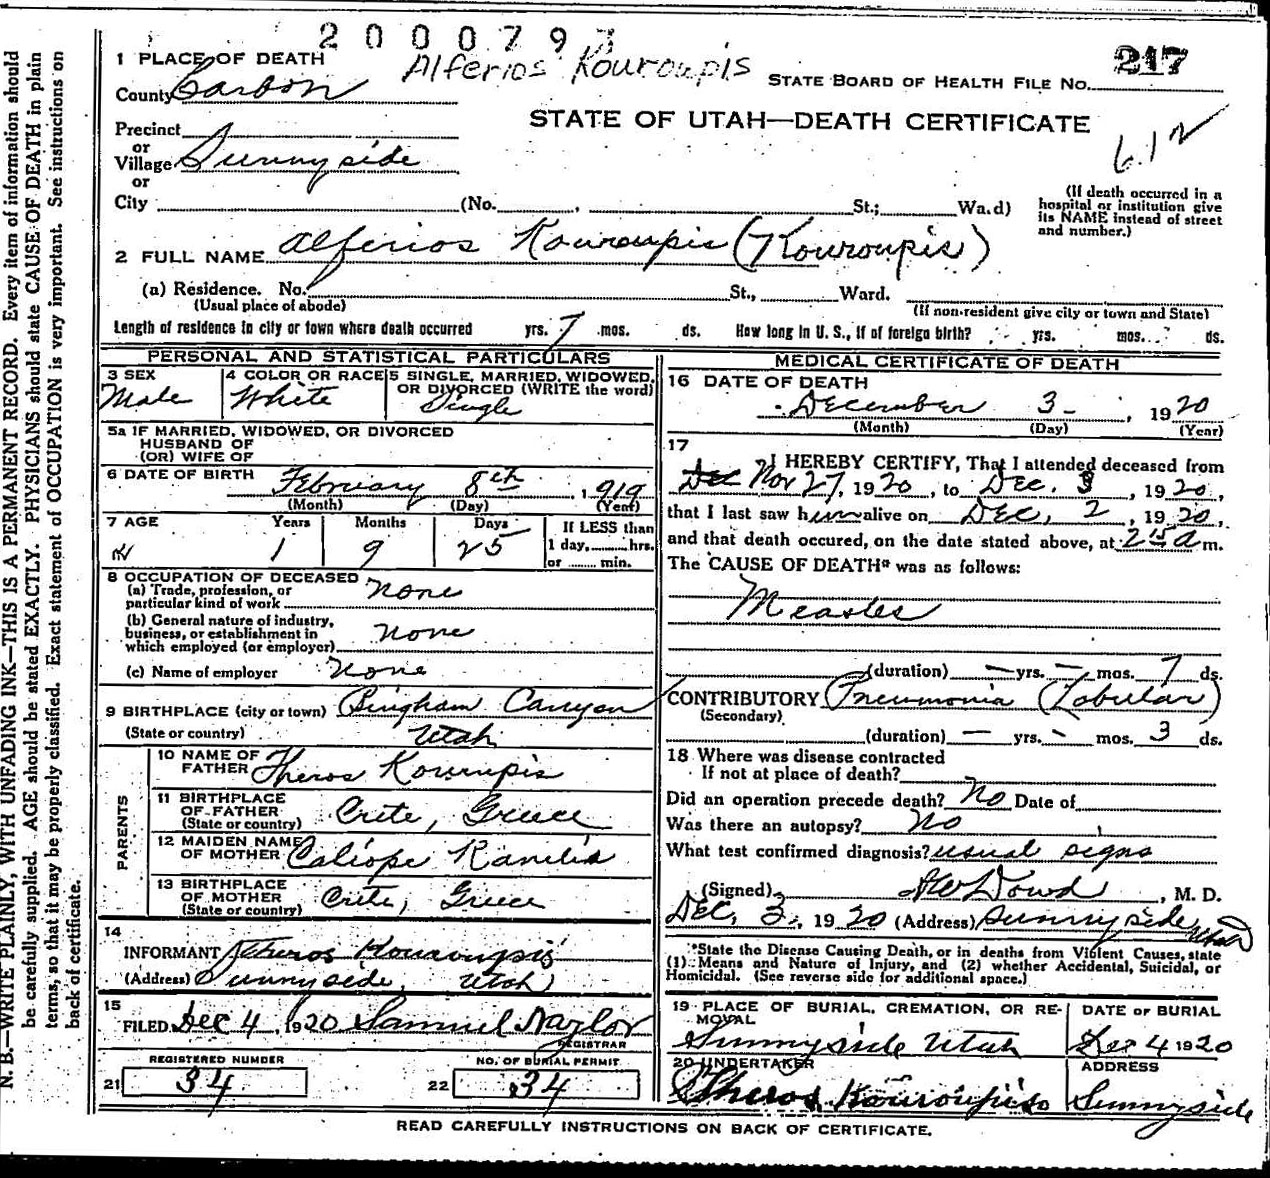 2000797
1 PLACE OF DEATH
Alferios Kouroupis
STATE BOARD OF HEALTH FILE No. 217
County Carbon
STATE OF UTAH—DEATH CERTIFICATE
Precinct
or
Village Sunnyside
or
City (No. , St.; Wa.d)
(If death occurred in a
hospital or institution give
its NAME instead of street
and number.)
2 FULL NAME Alferios Kouroupis (Kouroupis)
(a) Residence. No. St., Ward.
(Usual place of abode) (If non-resident give city or town and State)
Length of residence in city or town where death occurred yrs. 7 mos. ds. How long in U. S., if of foreign birth? yrs. mos. ds.
PERSONAL AND STATISTICAL PARTICULARS
3 SEX Male
4 COLOR OR RACE White
5 SINGLE, MARRIED, WIDOWED,
OR DIVORCED (WRITE the word)
Single
5a IF MARRIED, WIDOWED, OR DIVORCED
HUSBAND OF
(OR) WIFE OF
6 DATE OF BIRTH February 8th, 1919
(Month) (Day) (Year)
7 AGE Years Months Days If LESS than
1 9 25 1 day, hrs.
or min.
8 OCCUPATION OF DECEASED
(a) Trade, profession, or
particular kind of work none
(b) General nature of industry,
business, or establishment in
which employed (or employer) none
(c) Name of employer none
9 BIRTHPLACE (city or town) Bingham Canyon
(State or country) Utah
PARENTS
10 NAME OF
FATHER Theros Kouroupis
11 BIRTHPLACE
OF FATHER
(State or country) Crete, Greece
12 MAIDEN NAME
OF MOTHER Caliope
13 BIRTHPLACE
OF MOTHER
(State or country) Crete, Greece
14
INFORMANT Theros Kouroupis
(Address) Sunnyside, Utah
15
FILED Dec 4, 1920 Samuel Naylor
REGISTRAR
REGISTERED NUMBER
21 34
NO. OF BURIAL PERMIT
22 34
MEDICAL CERTIFICATE OF DEATH
16 DATE OF DEATH
December 3, 1920
(Month) (Day) (Year)
17
I HEREBY CERTIFY, That I attended deceased from
Dec Nov 27, 1920, to Dec. 3, 1920,
that I last saw him alive on Dec, 2, 1920,
and that death occured, on the date stated above, at 2 15 a m.
The CAUSE OF DEATH* was as follows:
Measles
(duration) — yrs. — mos. 7 ds.
CONTRIBUTORY Pneumonia (Lobular)
(Secondary)
(duration) — yrs. - mos. 3 ds.
18 Where was disease contracted
If not at place of death?
Did an operation precede death? No Date of
Was there an autopsy? No
What test confirmed diagnosis? usual signs
(Signed) Dowd, M. D.
Dec, 3, 1920 (Address) Sunnyside Utah
*State the Disease Causing Death, or in deaths from Violent Causes, state
(1) Means and Nature of Injury, and (2) whether Accidental, Suicidal, or
Homicidal. (See reverse side for additional space.)
19 PLACE OF BURIAL, CREMATION, OR RE-
MOVAL
Sunnyside Utah
DATE OF BURIAL
Dec 4 1920
20 UNDERTAKER
Theros Kouroupis
ADDRESS
Sunnyside
READ CAREFULLY INSTRUCTIONS ON BACK OF CERTIFICATE.
N. B.—WRITE PLAINLY, WITH UNFADING INK—THIS IS A PERMANENT RECORD. Every item of information should
be carefully supplied. AGE should be stated EXACTLY. PHYSICIANS should state CAUSE OF DEATH in plain
terms, so that it may be properly classified. Exact statement of OCCUPATION is very important. See instructions on
back of certificate.